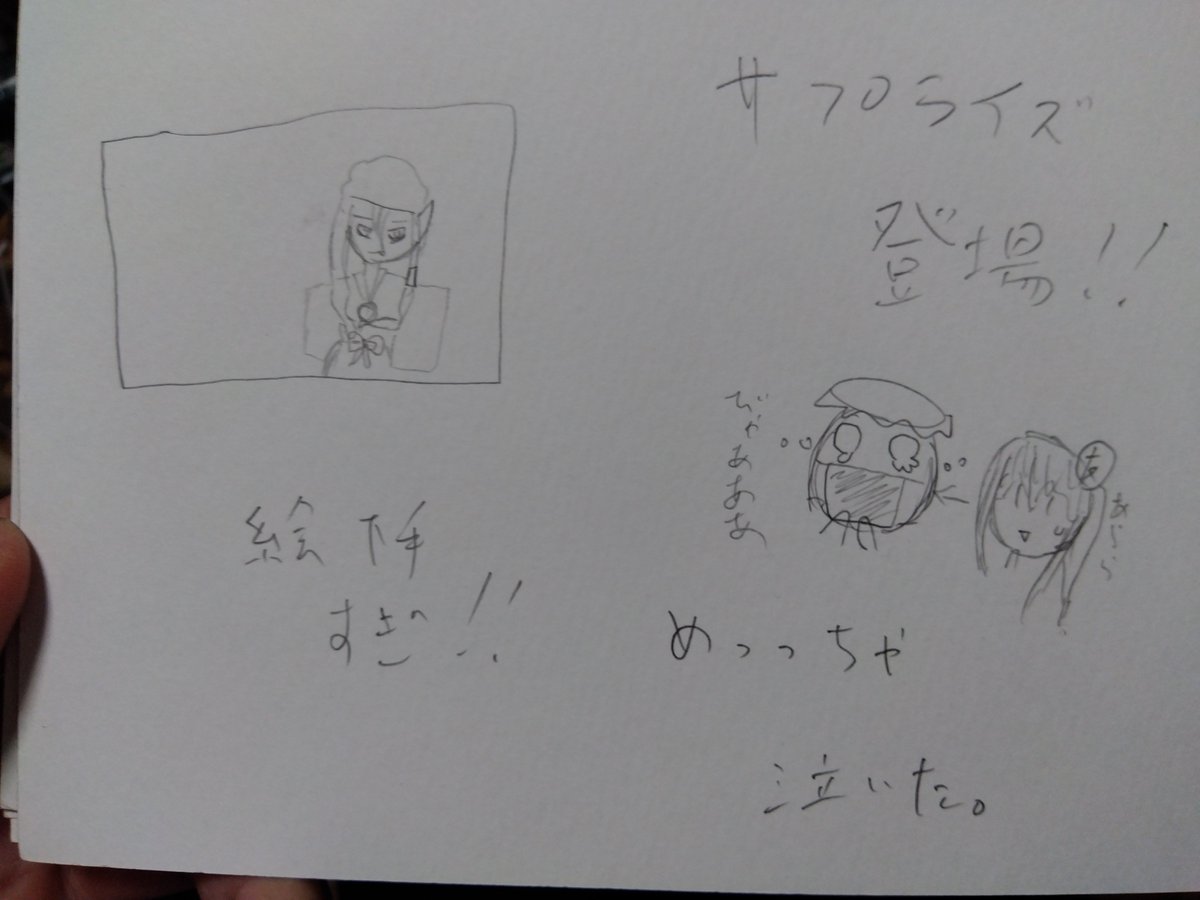 サプライズ
登場!!
びゃあああ
あ
あらら
めっっちゃ
泣いた。
絵下手
すぎ!!